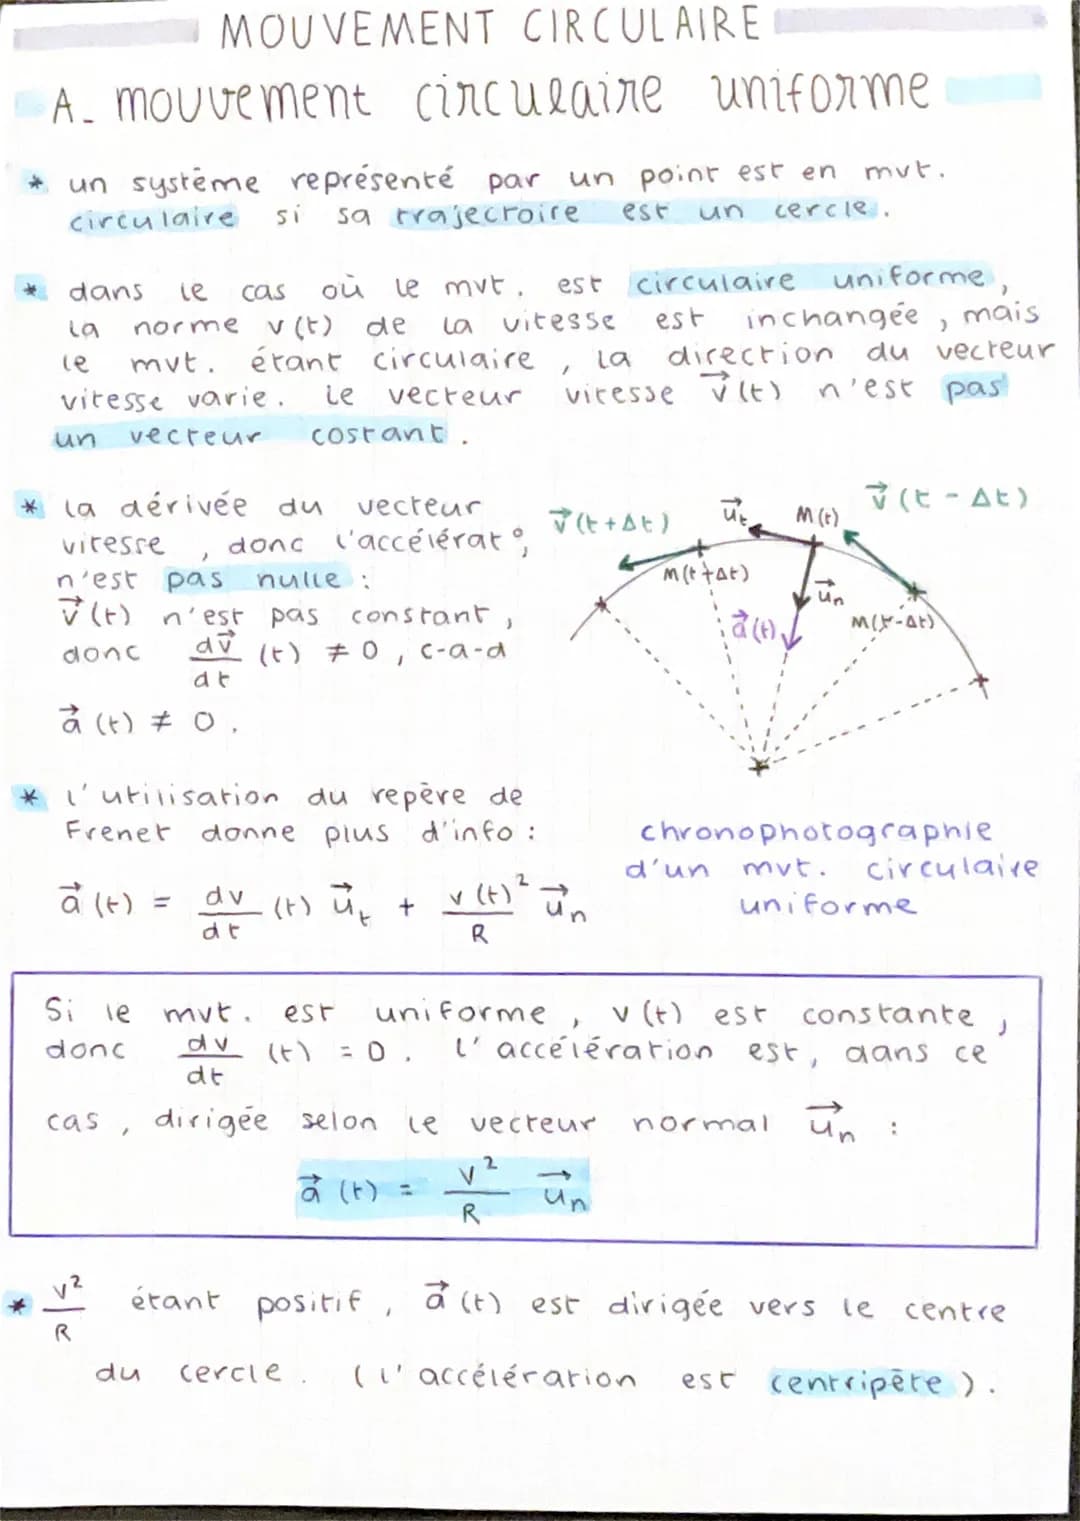 MOUVEMENT CIRCULAIRE
A_ mouvement circulaire uniforme
* un système représenté par un point est en mvt.
circulaire si sa trajectoire est un cercle.
* dans le cas où le mvt. est circulaire uniforme,
la norme v(t) de la vitesse est inchangée, mais
le mvt. étant circulaire, la direction du vecteur
vitesse varie. Le vecteur vitesse v⃗(t) n'est pas
un vecteur costant.
* la dérivée du vecteur
vitesse, donc l'accélérat°,
n'est pas nulle :
v⃗(t) n'est pas constant,
donc dv⃗/dt (t) ≠ 0, c-a-d
a⃗(t) ≠ 0.
v⃗(t+Δt)
u⃗t
M(t)
v⃗(t - Δt)
M(t+Δt)
u⃗n
a⃗(t)
M(t-Δt)
* l'utilisation du repère de
Frenet donne plus d'info :
a⃗(t) = dv/dt (t) u⃗t + v(t)²/R u⃗n
chronophotographie
d'un mvt. circulaire
uniforme
Si le mvt. est uniforme, v(t) est constante,
donc dv/dt (t) = 0. L'accélération est, dans ce
cas, dirigée selon le vecteur normal u⃗n :
a⃗(t) = v²/R u⃗n
* v²/R étant positif, a⃗(t) est dirigée vers le centre
du cercle. (l'accélération est centripète).